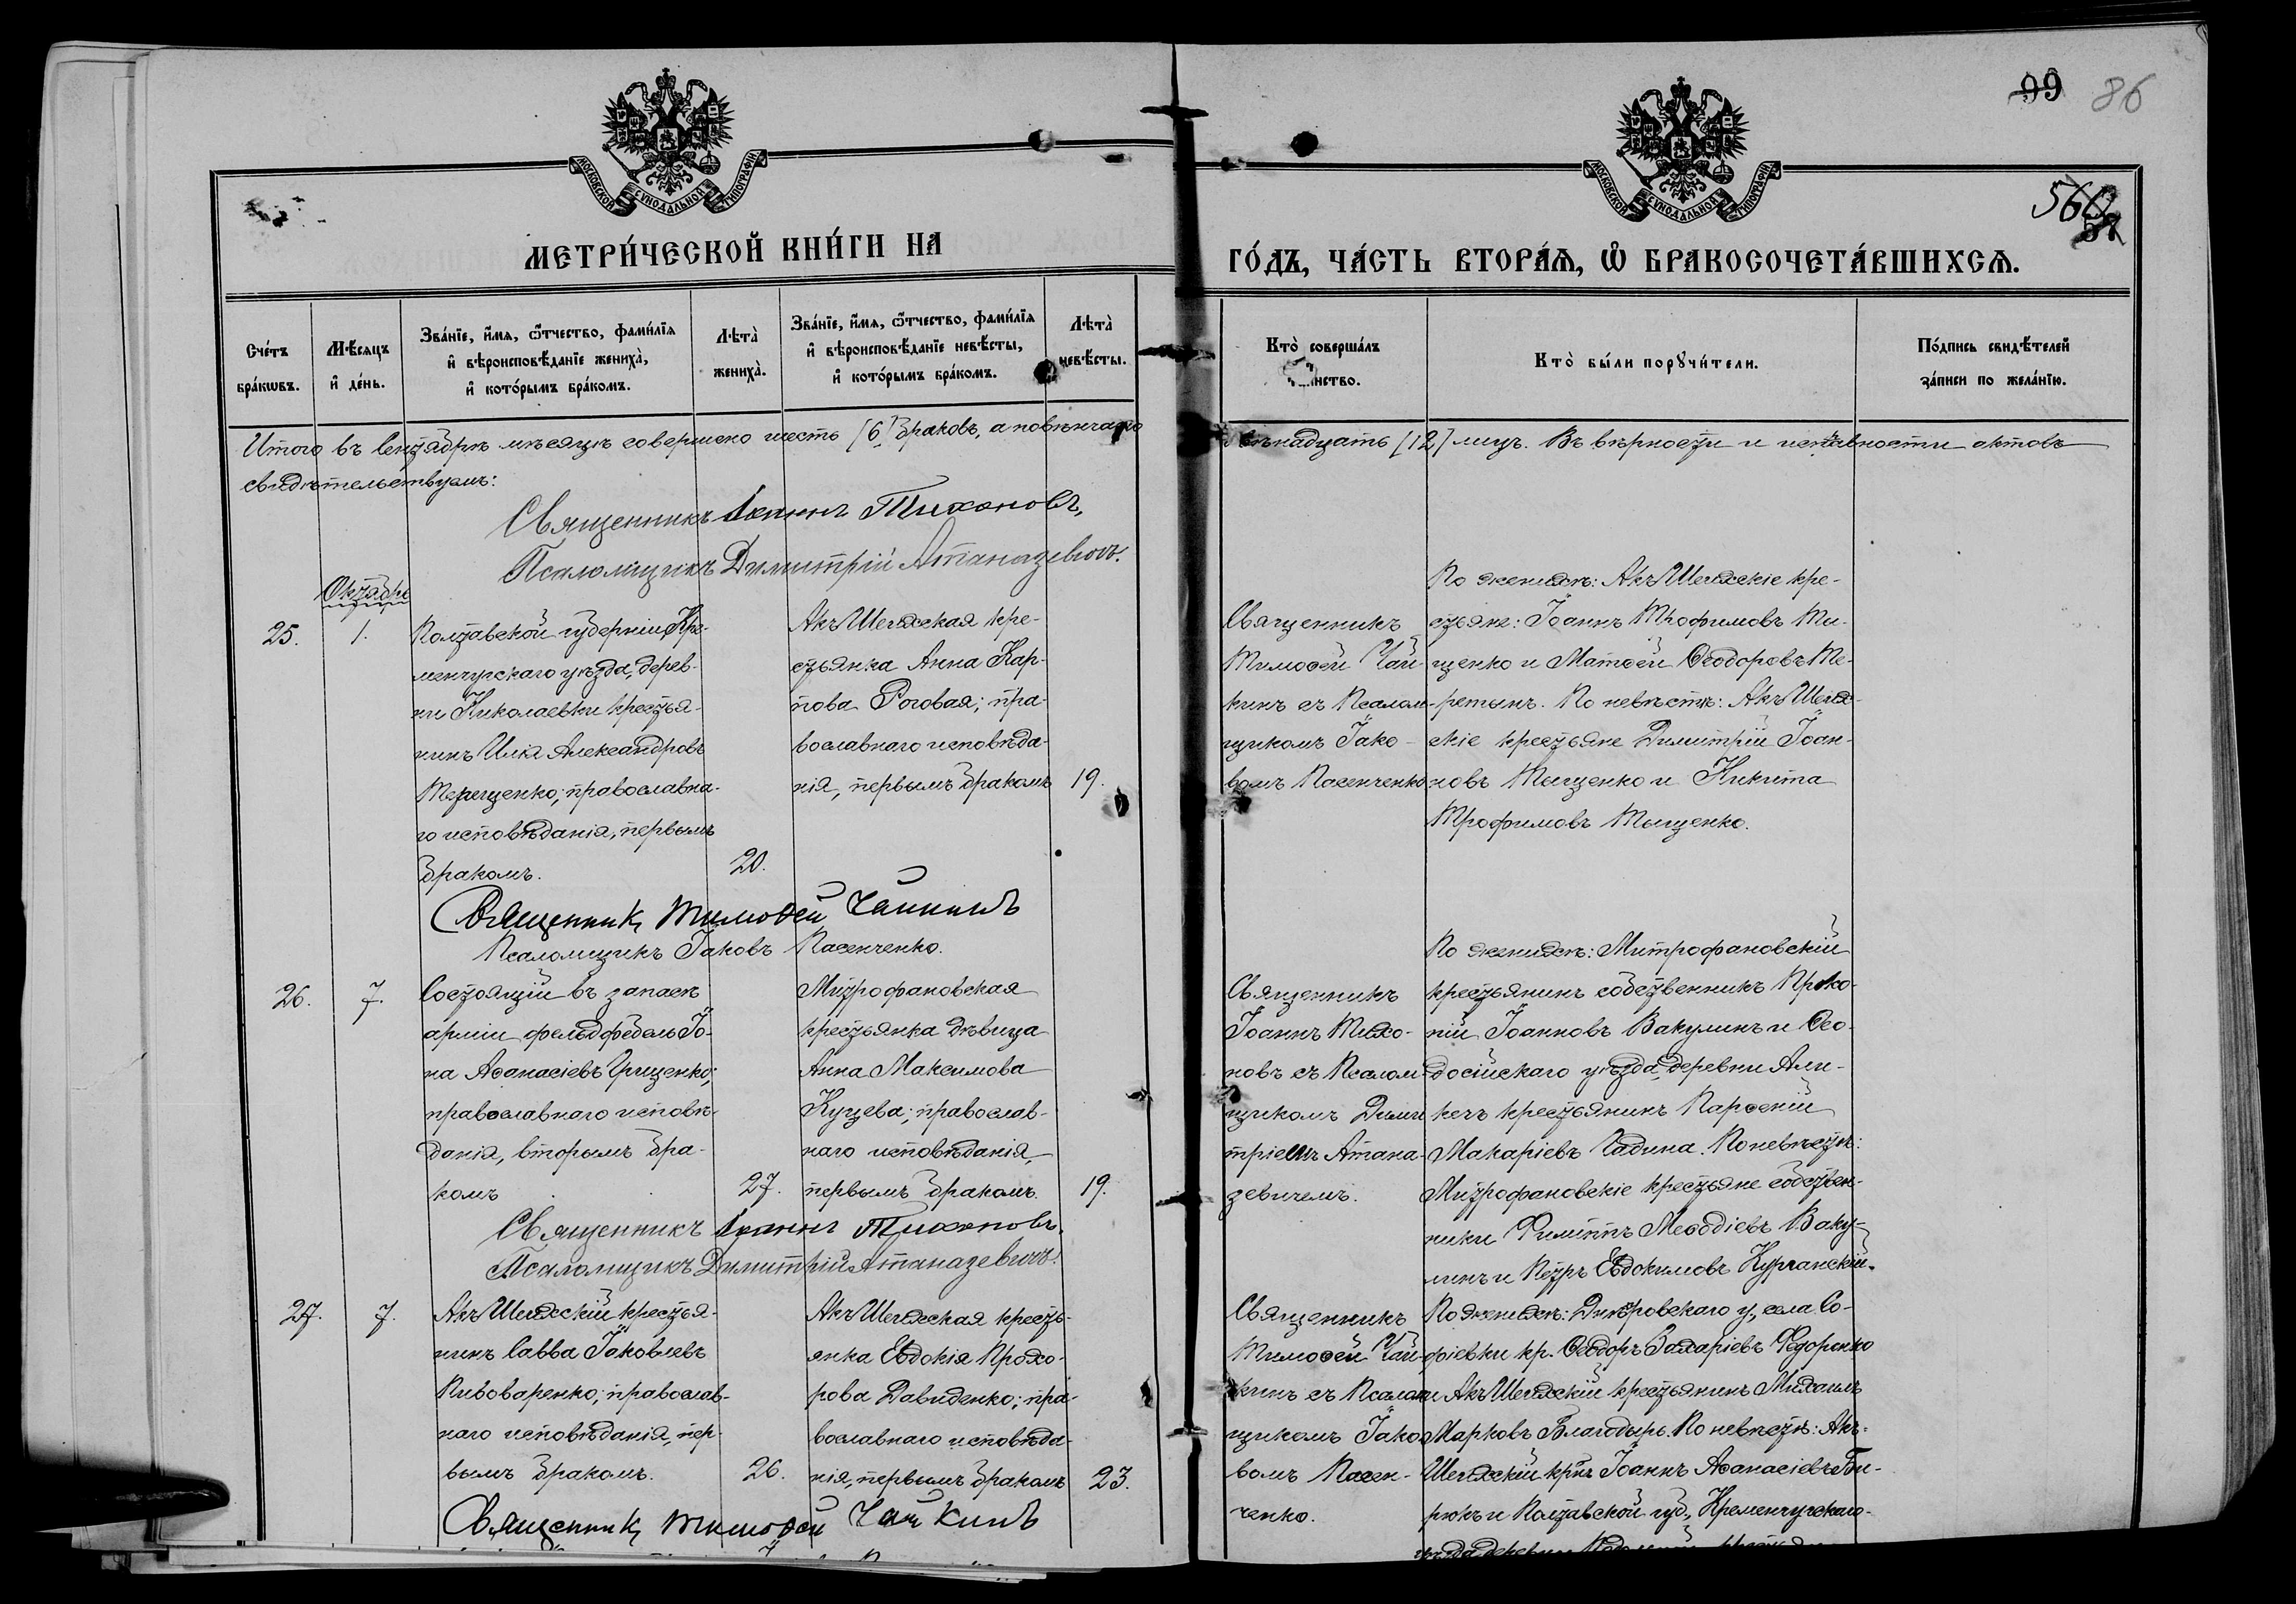 99 86
МОСКОВСКОЙ СУНОДАЛЬНОЙ ТИПОГРАФІИ
МОСКОВСКОЙ СУНОДАЛЬНОЙ ТИПОГРАФІИ
560
МЕТРИ́ЧЕСКОЙ КНИ́ГИ НА
ГО́ДЪ, ЧА́СТЬ ВТОРА́Ѧ, Ѽ БРАКОСОЧЕТА́ВШИХСѦ.
Сче́тъ бра́кѡвъ.
Мѣ́сяцъ и҆ де́нь.
Зва́нїе, и҆́мѧ, ѻ҆́тчество, фами́лїѧ
и҆ вѣроисповѣ́данїе женихà,
и҆ кото́рымъ бра́комъ.
Лѣтà женихà.
Зва́нїе, и҆́мѧ, ѻ҆́тчество, фами́лїѧ
и҆ вѣроисповѣ́данїе невѣ́сты,
и҆ кото́рымъ бра́комъ.
Лѣтà невѣ́сты.
Ктò соверша́лъ
таинство.
Ктò бы́ли порꙋчи́тели.
По́дпись свидѣ́телей
за́писи по жела́нїю.
Итого въ Сентябрѣ мѣсяцѣ совершено шесть [6] браковъ, а повѣнчано
двѣнадцать [12] лицъ. Въ вѣрности и исправности актовъ
свидѣтельствуемъ:
Священникъ Іоаннъ Тихоновъ,
Псаломщикъ Димитрій Атаназевичъ.
Октябрь
25.
1.
Полтавской губерніи, Кре-
менчугскаго уѣзда, дерев-
ни Николаевки крестья-
нинъ Илія Александровъ
Терещенко; православна-
го исповѣданія, первымъ
бракомъ.
20.
Акъ Шеихская кре-
стьянка Анна Кар-
пова Роговая; пра-
вославнаго исповѣда-
нія, первымъ бракомъ
19.
Священникъ
Тимоѳей Чай-
кинъ съ Псалом-
щикомъ Іако-
вомъ Пасенченко
По женихѣ: Акъ Шеихскіе кре-
стьяне: Іоаннъ Трофимовъ Ти-
щенко и Матѳей Ѳеодоровъ Те-
ретынъ. По невѣстѣ: Акъ Шеих-
скіе крестьяне Димитрій Іоан-
новъ Тыщенко и Никита
Трофимовъ Тыщенко.
Священникъ Тимоѳей Чайкинъ
Псаломщикъ Іаковъ Пасенченко.
26.
7.
Состоящій въ запасѣ
арміи фельдфебель Іо-
на Аѳанасіевъ Грищенко;
православнаго исповѣ-
данія, вторымъ бра-
комъ
27.
Митрофановская
крестьянка дѣвица
Анна Максимова
Куцева; православ-
наго исповѣданія,
первымъ бракомъ.
19.
Священникъ
Іоаннъ Тихо-
новъ съ Псалом-
щикомъ Дими
тріемъ Атана-
зевичемъ.
По женихѣ: Митрофановскій
крестьянинъ собственникъ Проко-
пій Іоанновъ Вакулинъ и Ѳео-
досійскаго уѣзда, деревни Али-
кечъ крестьянинъ Парѳеній
Макаріевъ Чадина. По невѣстѣ:
Митрофановскіе крестьяне собствен-
ники Филиппъ Меѳодіевъ Ваку-
линъ и Петръ Евдокимовъ Курганскій.
Священникъ Іоаннъ Тихоновъ,
Псаломщикъ Димитрій Атаназевичъ.
27.
7.
Акъ Шеихскій крестья-
нинъ Савва Іаковлевъ
Пивоваренко; православ-
наго исповѣданія, пер-
вымъ бракомъ.
26.
Акъ Шеихская кресть-
янка Евдокія Прохо-
рова Давиденко; пра-
вославнаго исповѣда-
нія, первымъ бракомъ
23.
Священникъ
Тимоѳей Чай-
кинъ съ Псалом
щикомъ Іако
вомъ Пасен-
ченко.
По женихѣ: Днѣпровскаго у., села Со-
фіевки кр. Ѳеодоръ Захаріевъ Федоренко
и Акъ Шеихскій крестьянинъ Михаилъ
Марковъ Благодырь. По невѣстѣ: Акъ-
Шеихскій кр-нъ Іоаннъ Аѳанасіевъ Би-
рюкъ и Полтавской губ., Кременчугскаго
Священникъ Тимоѳей Чайкинъ